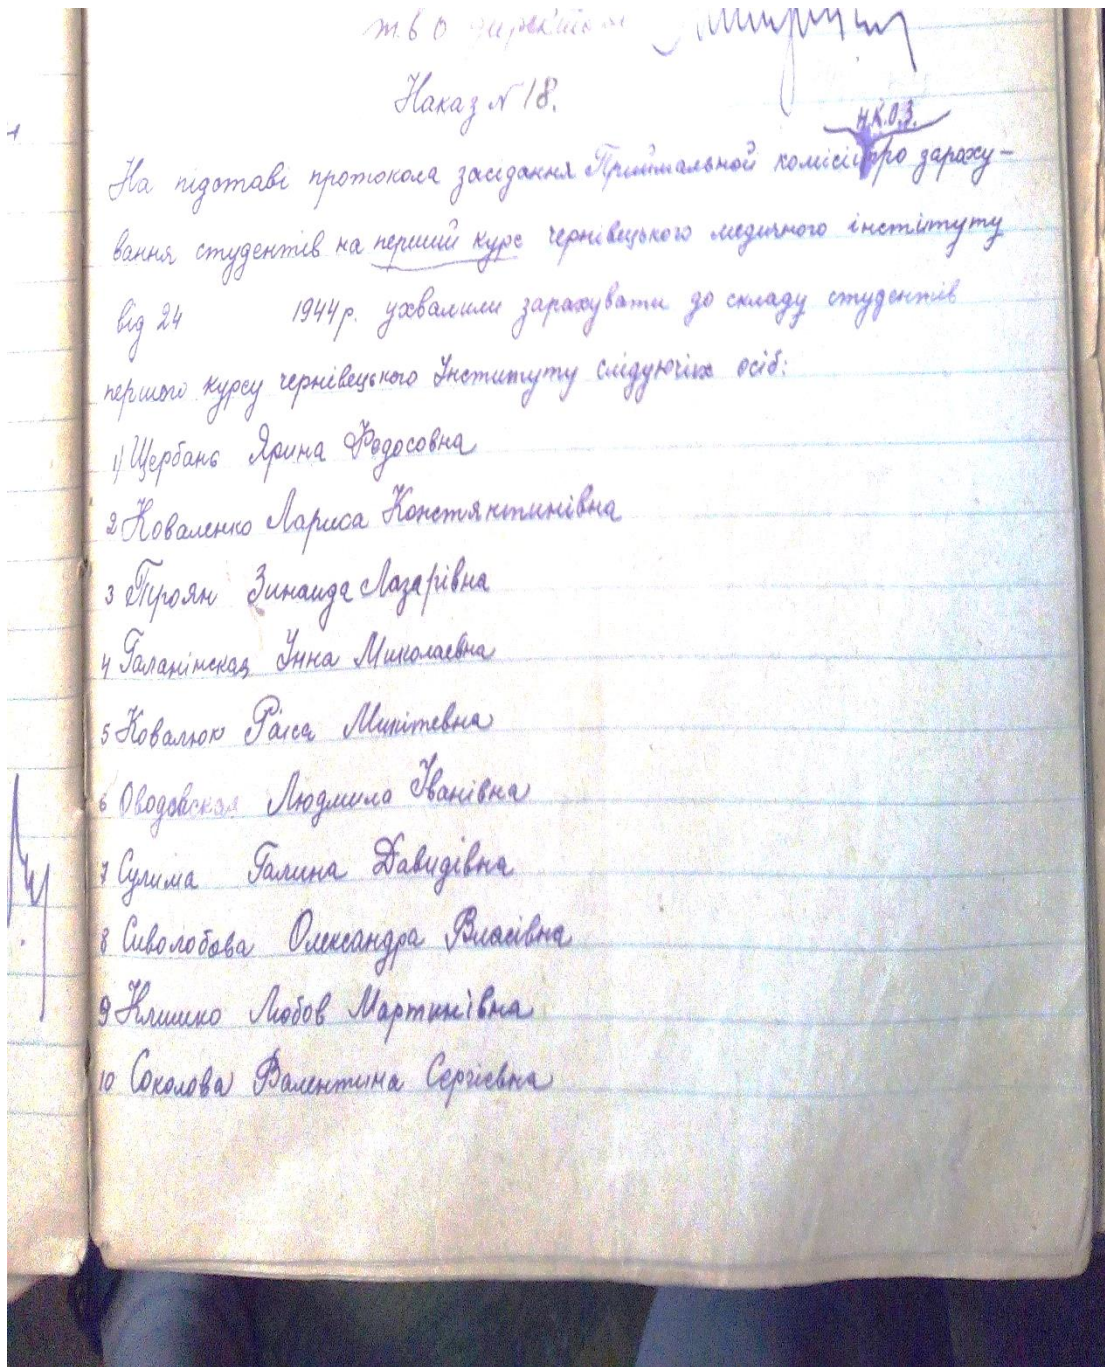 т.в.о директора
Наказ № 18.
Н.К.О.З.
На підставі протокола засідання Приймальной комісії про зараху-
вання студентів на перший курс чернівецького медичного інституту
від 24 1944р. ухвалили зарахувати до складу студентів
першого курсу чернівецького Інституту слідуючіх осіб:
1) Щербань Ярина Федосовна
2 Коваленко Лариса Констянтинівна
3 Трояк Зинаида Лазарівна
4 Галанінская Інна Миколаєвна
5 Ковалюк Раїса Микітевна
6 Оводовская Людмила Іванівна
7 Сулима Галина Давидівна
8 Сиволобова Олександра Власівна
9 Климко Любов Мартинівна
10 Соколова Валентина Сергієвна